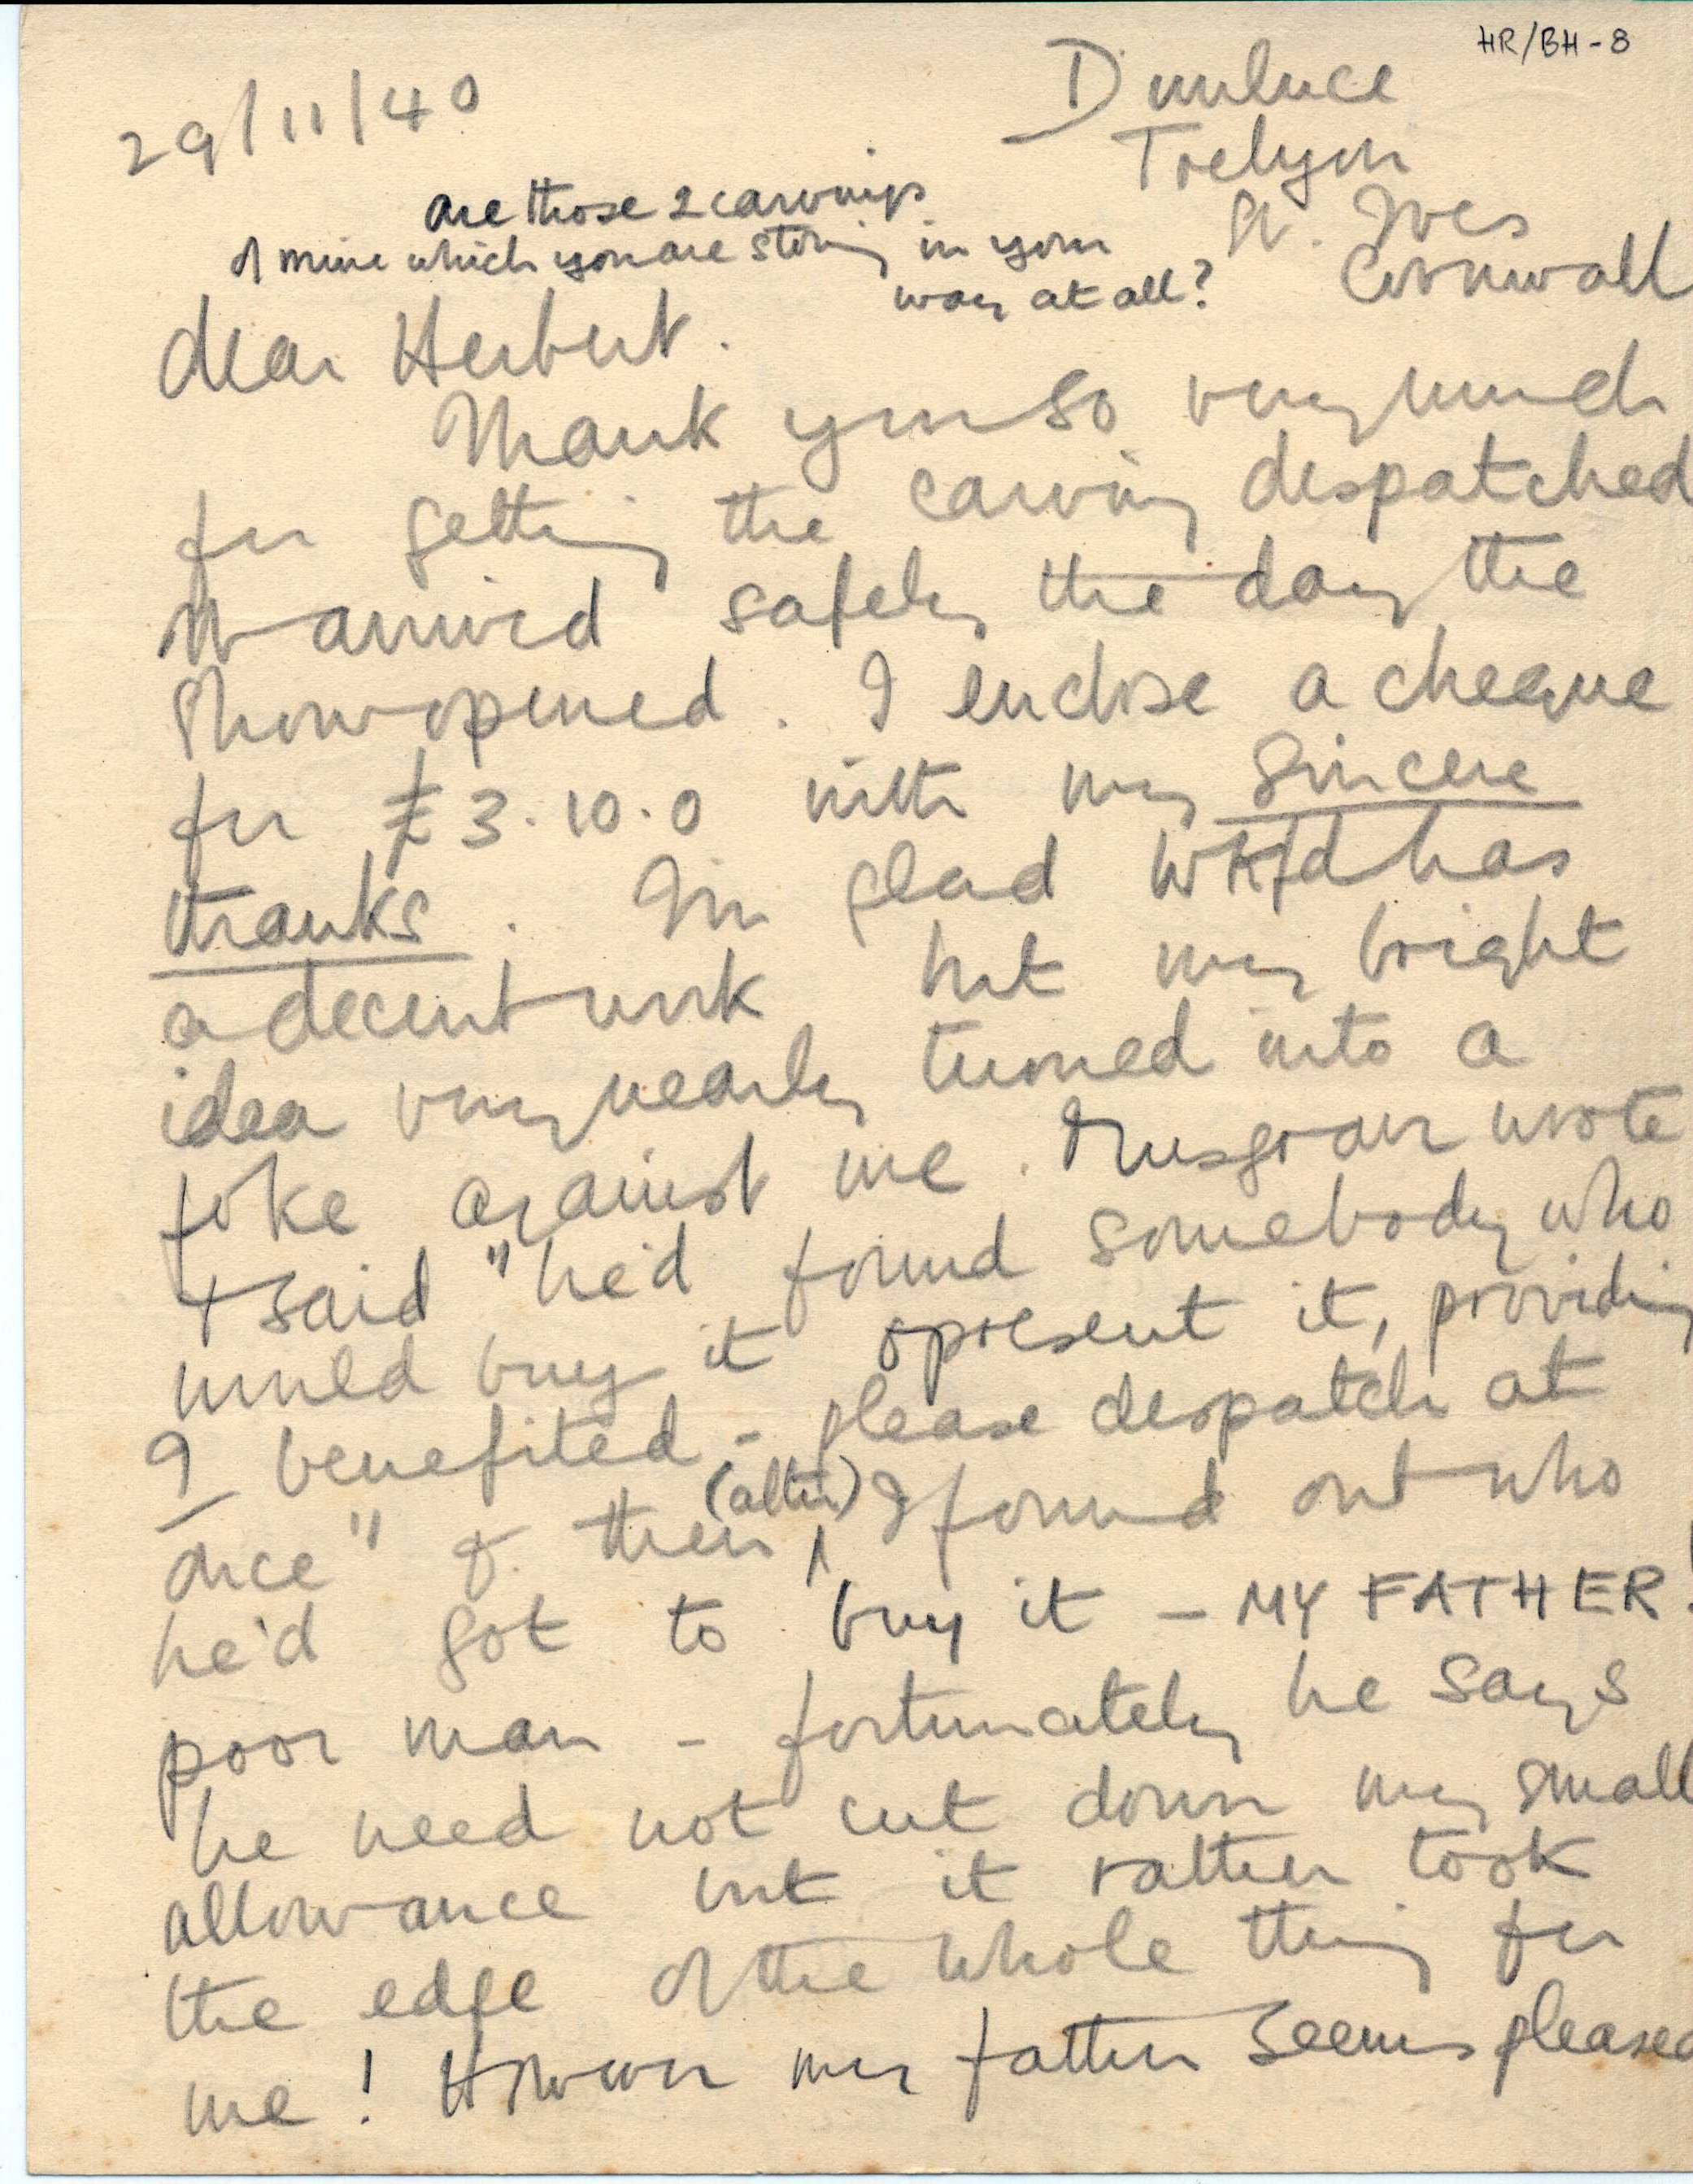 HR/BH-8
29/11/40
Dunluce
Trelyon
St. Ives
Cornwall
are those 2 carvings
of mine which you are storing in your
way at all?
dear Herbert.
Thank you so very much
for getting the carving despatched
It arrived safely the day the
Show opened. I enclose a cheque
for £3.10.0 with my sincere
thanks. I'm glad Wkfd has
a decent work but my bright
idea very nearly turned into a
joke against me. Musgrave wrote
& said "he'd found somebody who
would buy it & present it, providing
I benefited - please despatch at
once" & then (after) I found out who
he'd got to buy it - MY FATHER!
poor man - fortunately he says
he need not cut down my small
allowance but it rather took
the edge of the whole thing for
me! However my father seems pleased